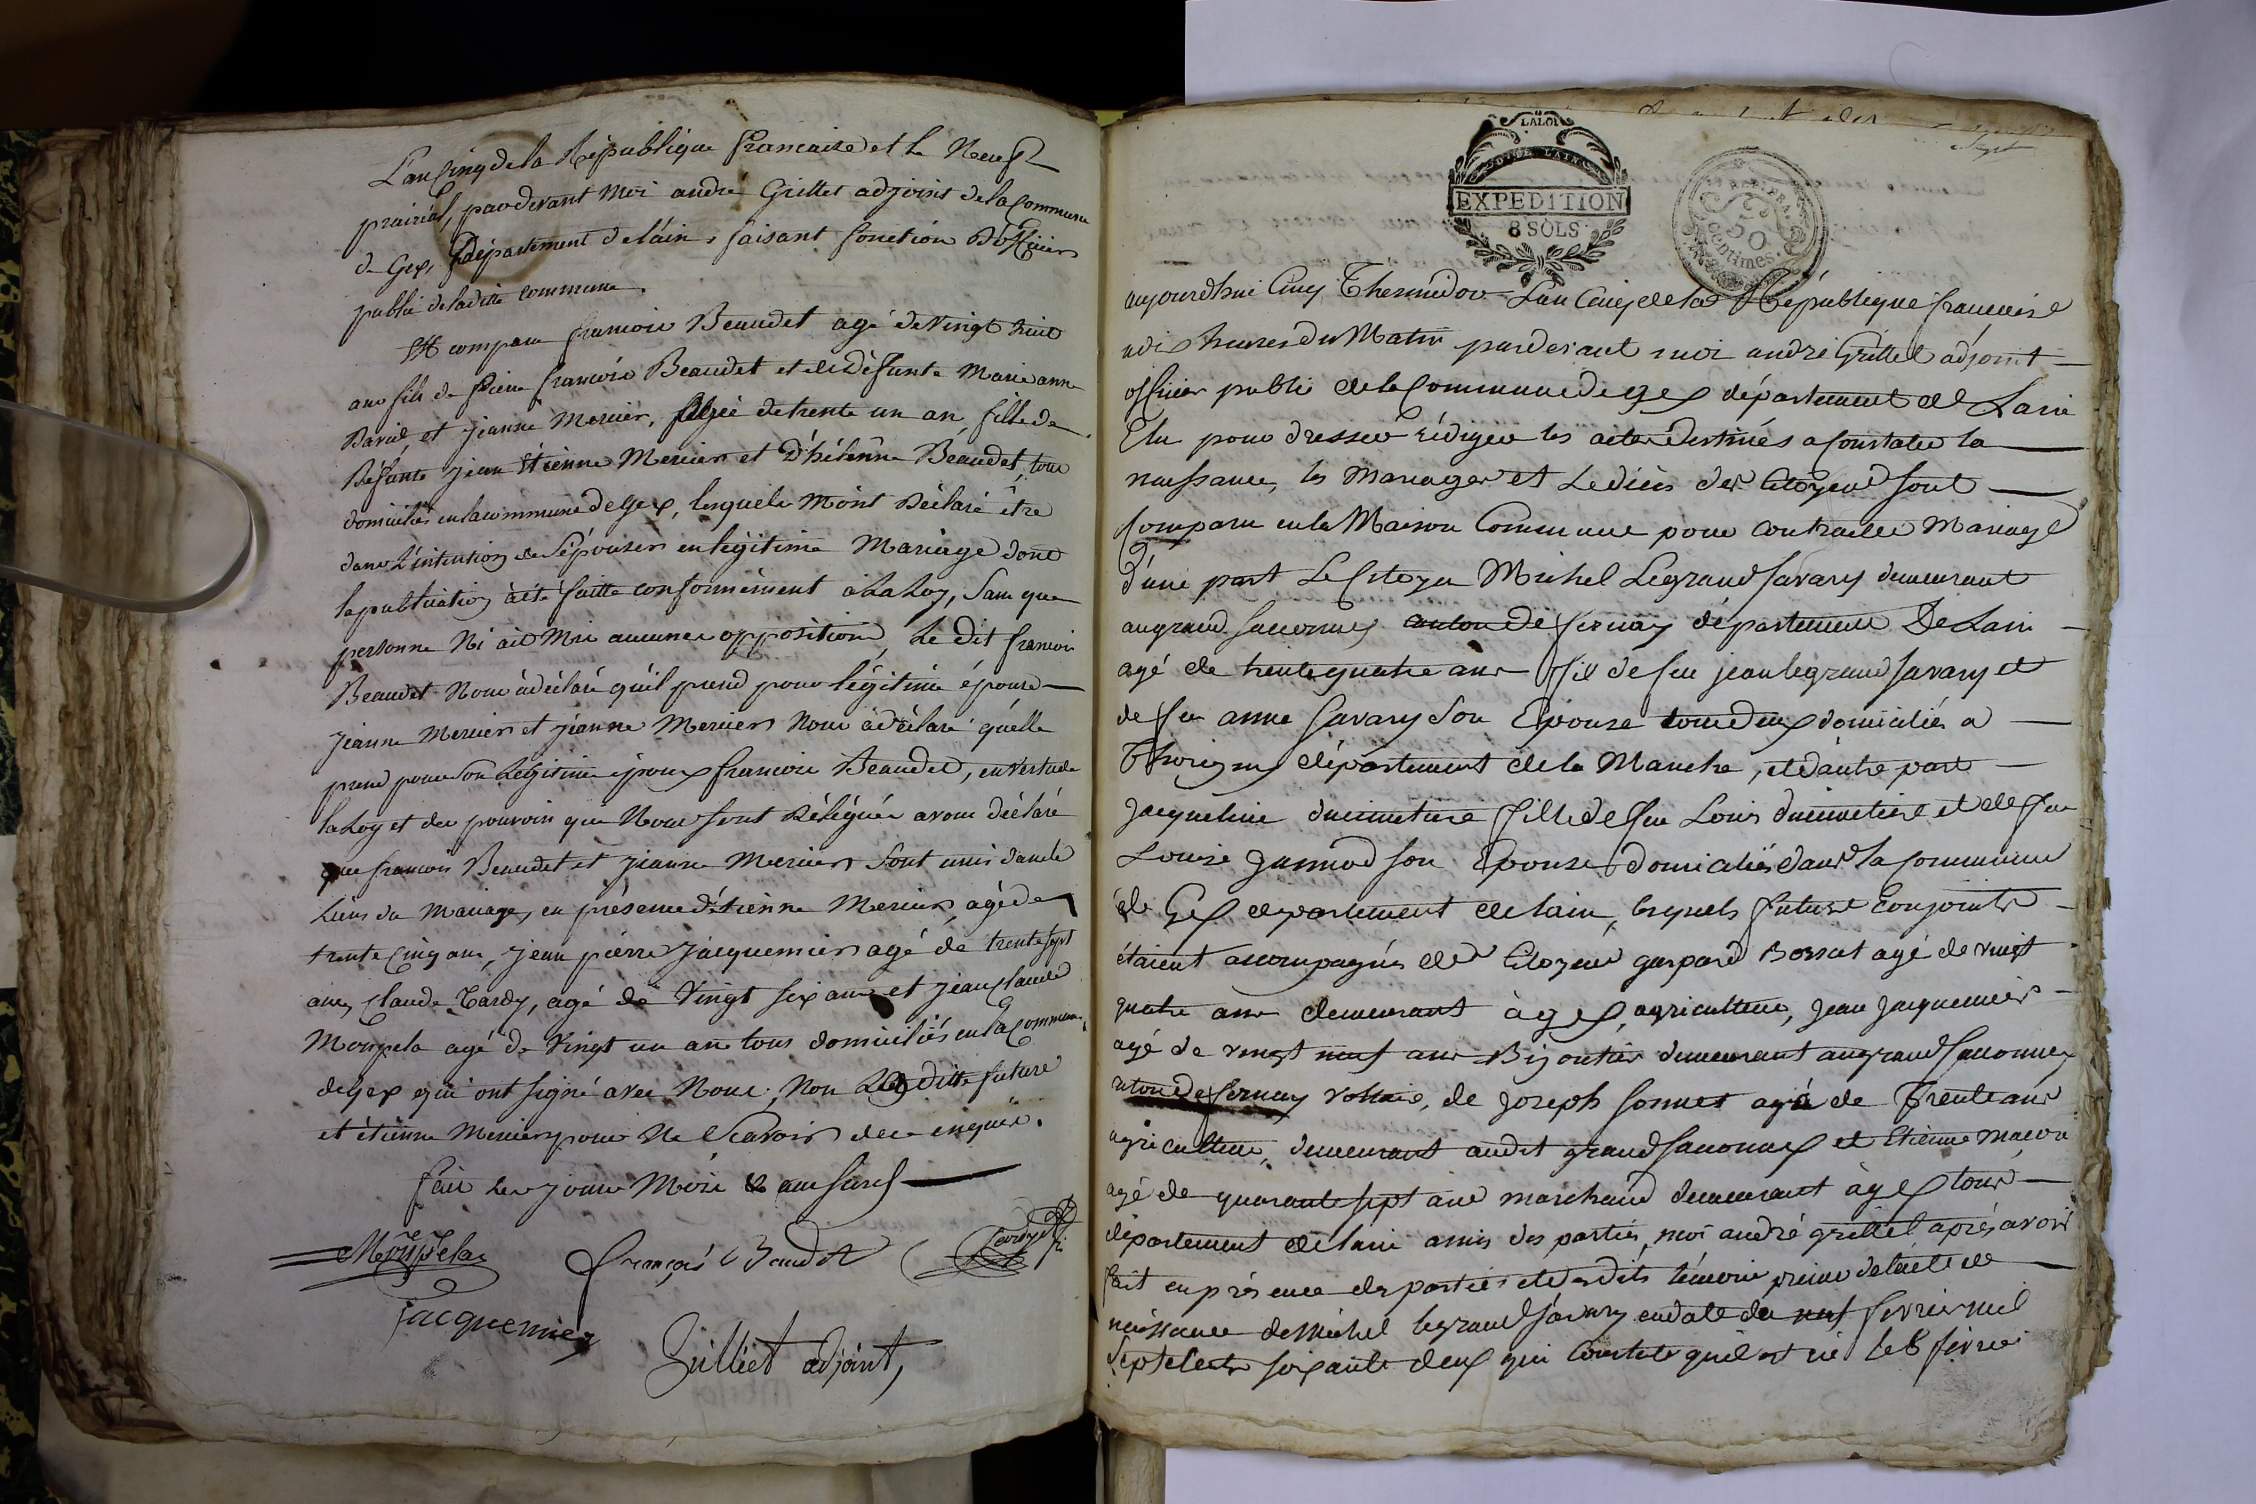 L'an Cinq de la République francaise et le Neuf
prairéal, pardevant Moi andré Grillet adjoint de la Commune
de Gex, département de l'ain, faisant fonction D'officier
public de la ditte commune.
Est comparu francois Beaudet agé de Vingt huit
ans fils de Pierre francois Beaudet et de Défunte Marie anne
et jeanne Mercier, agée de trente un an, fille de
Défunts jean Etienne Mercier et D'héléne Beaudet, tous
domiciliés en la commune de Gex, lesquels M'ont Déclaré être
dans L'intention de S'épouser en légitime Mariage dont
la publication à été faitte conformément à La Loy, Sans que
personne Ni ait Mis aucunes opposition, Le Dit francois
Beaudet Nous à déclaré qu'il prend pour légitime épouse
jeanne Mercier et jeanne Mercier Nous à déclaré qu'elle
prend pour Son Légitime époux francois Beaudet, en Vertu de
la Loy et des pouvoirs que Nous Sont Délégués avons déclaré
que francois Beaudet et jeanne Mercier Sont unis dans le
Liens du Mariage, en présence d'étienne Mercier, agé de
trente Cinq ans, jean pierre jacquemier agé de trente sept
ans, Claude Tardy, agé de Vingt six ans et jean Claude
Mouxpela agé de Vingt un an tous domiciliés en la Commune
de Gex qui ont signé avec Nous, Non La ditte future
et étienne Mercier pour Ne Scavoir de ce enquis.
fait les jours Mois & an susd
Mouxpela françois Baudet Tardy
Jacquemier
Grilliet adjoint,
LA LOI
EXPEDITION
8 SOLS
50
Centimes
Sept
aujourdhui Cinq Thermidor L'an Cinq de la République francaise
a dix heures du Matin pardevant moi andré Grillet adjoint
officier public de la Commune de gex département de Lain
Elu pour dresser rédiger les actes destinés a Constater la
naissance, les Mariages et Le décès des Citoyens sont
Comparu en la Maison Commune pour contracter Mariage
d'une part Le Citoyen Michel Legrand Savary demeurant
au grand Saconnex canton de fernay département De Lain
agé de trente quatre ans fil de feu jean legrand Savary et
de feu anne Savary Son Epouse tous deux domiciliés a
Thorigny département de la Manche, et d'autre part
Jacqueline ducimetiere fille de feu Louis ducimetiere et de feu
Louise son Epouse domiciliés dans la Commune
de Gex département de lain, lesquels futurs Conjoints
étaient accompagnés des Citoyens gaspard Bossat agé de vingt
quatre ans demeurant à gex, agriculteur, Jean Jacquemier
agé de vingt neuf ans Bijoutier demeurant au grand Saconnex
canton de fernay Voltaire, de Joseph Sonnet agé de Trente ans
agriculteur, demeurant audit grand Saconnex et Etienne
agé de quarante sept ans marchand demeurant à gex tous
département de lain amis des parties, moi andré grillet après avoir
fait en présence des parties et desdits témoins de l'acte de
naissance de Michel legrand Savary en date du neuf fevrier mil
Sept Cents soixante deux qui Constate qu'il est né le 8 février